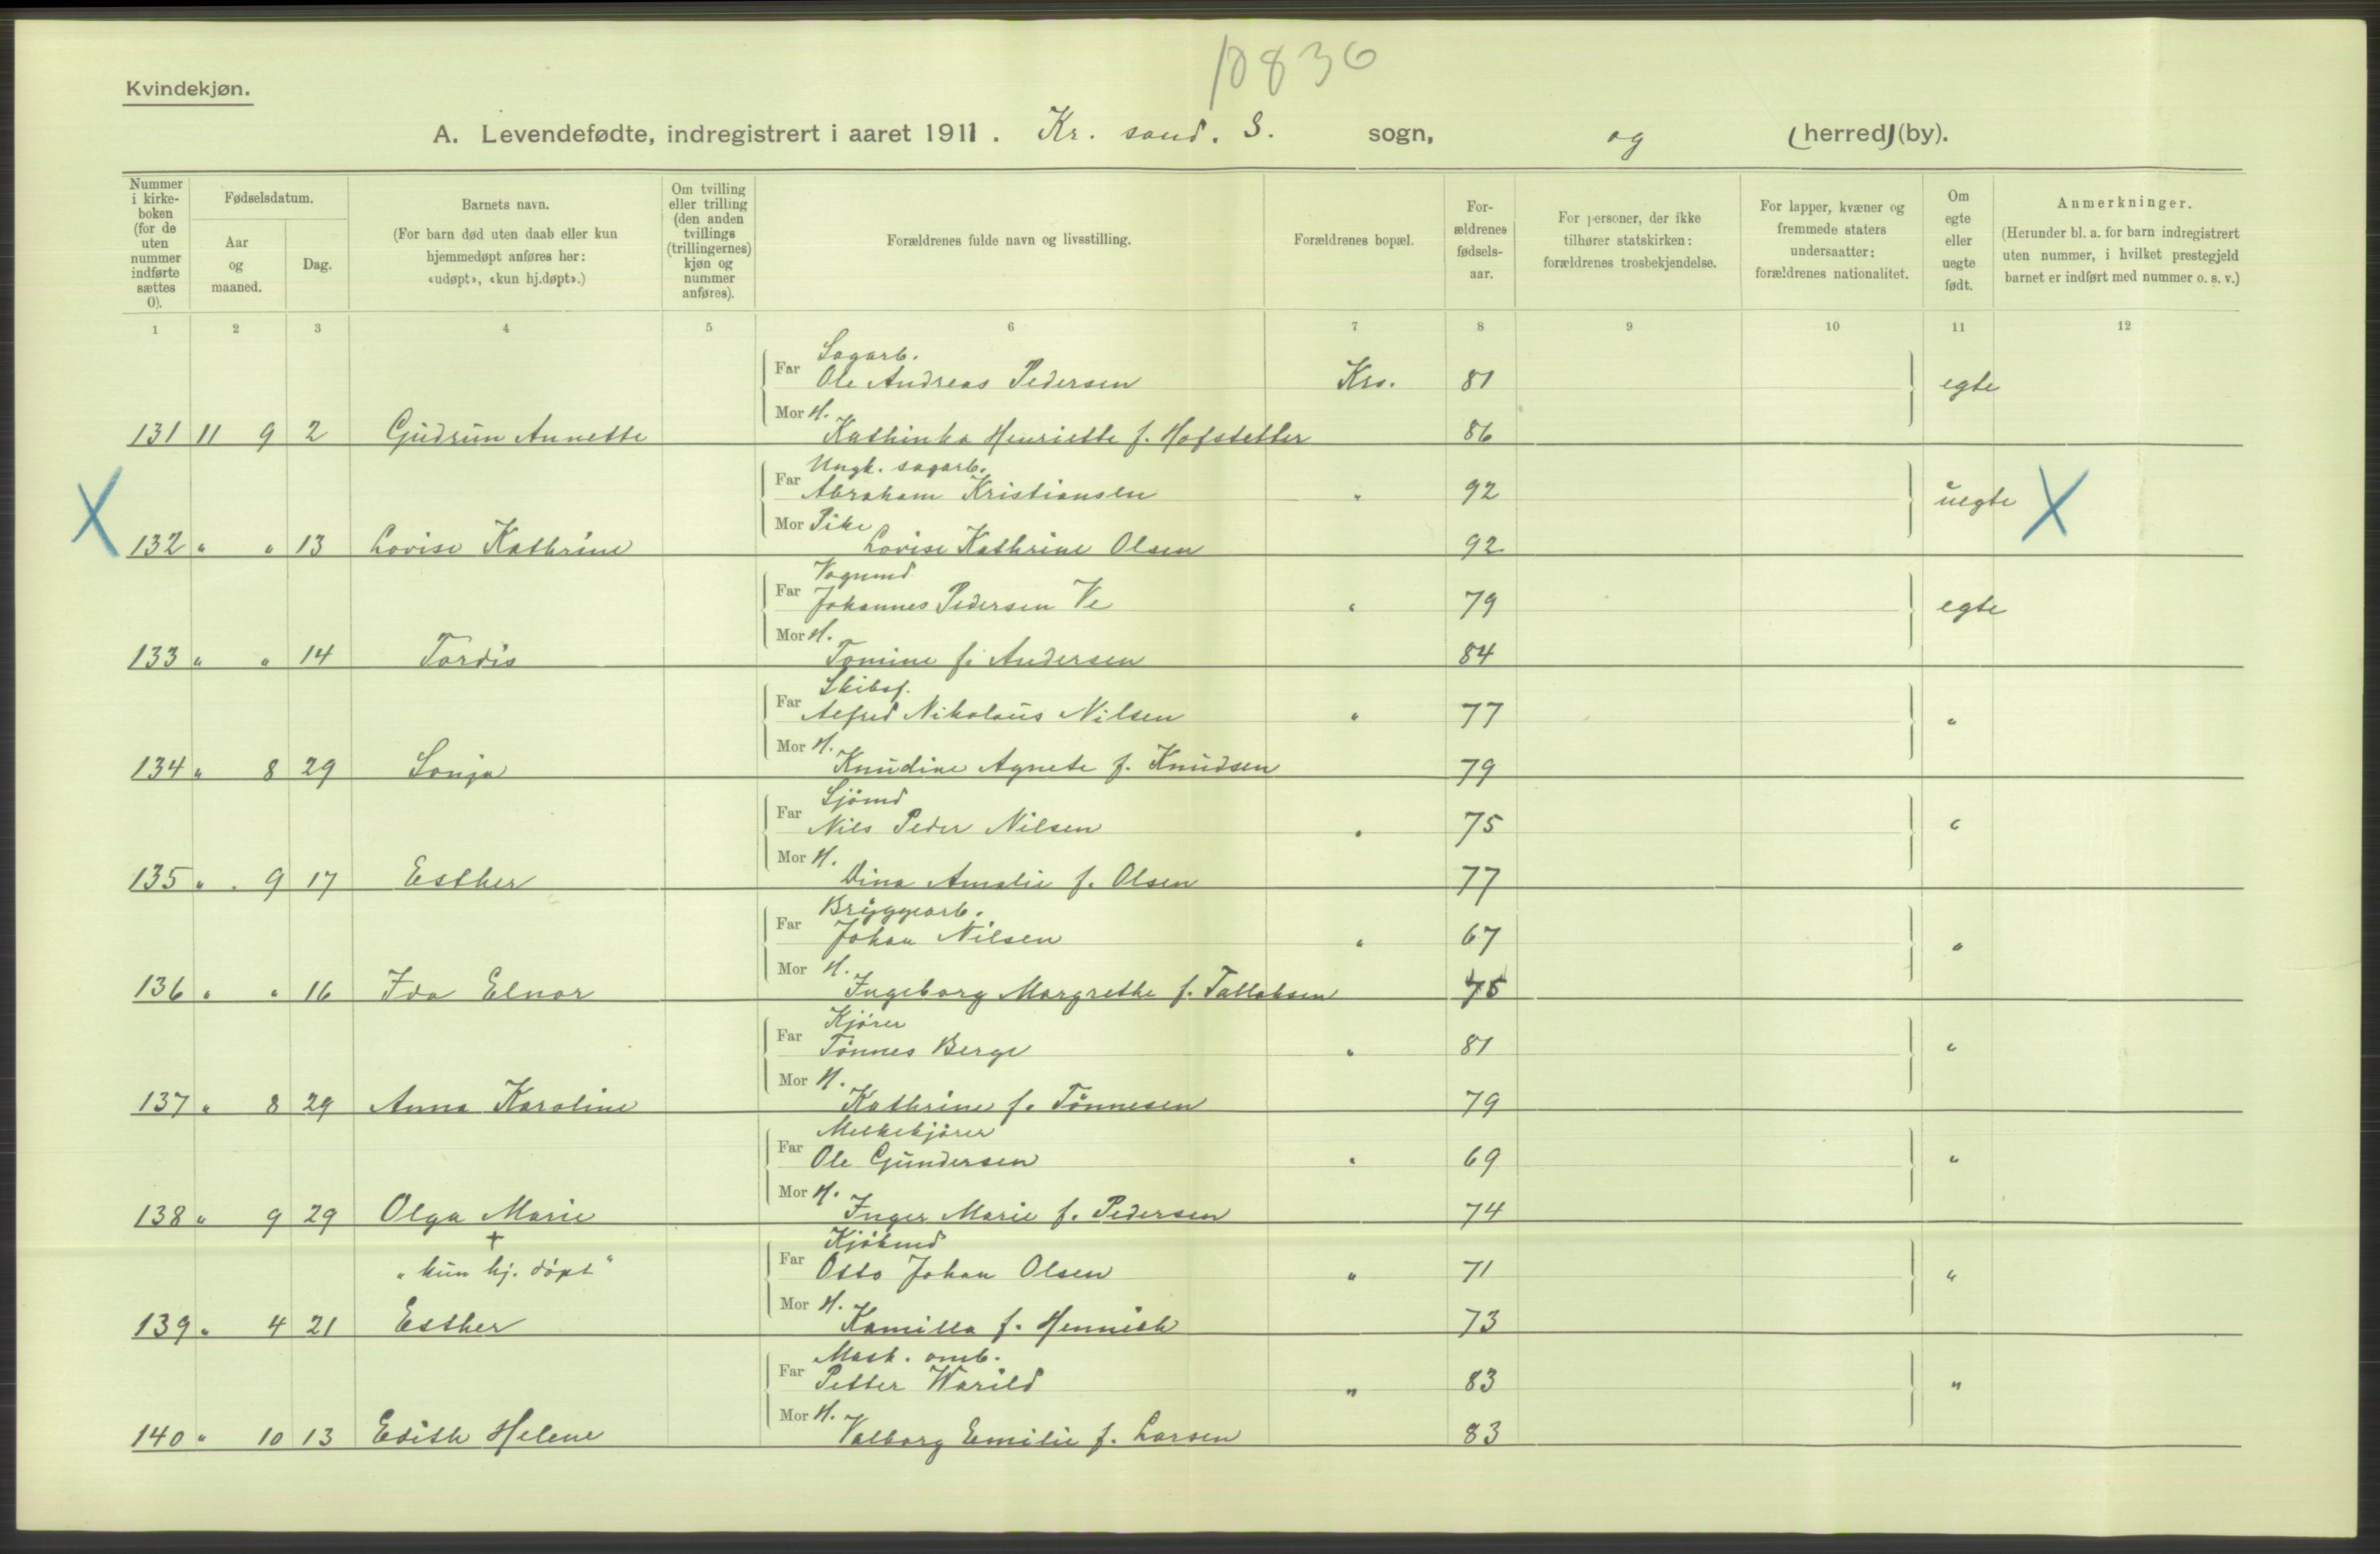 10836
Kvindekjøn.
A. Levendefødte, indregistrert i aaret 1911. Kr. sand. S. sogn, og (herred) (by).
Nummer i kirke-boken (for de uten nummer indførte sættes 0).
Fødselsdatum.
Aar og maaned.
Dag.
Barnets navn.
(For barn død uten daab eller kun hjemmedøpt anføres her: «udøpt», «kun hj.døpt».)
Om tvilling eller trilling (den anden tvillings (trillingernes) kjøn og nummer anføres).
Forældrenes fulde navn og livsstilling.
Forældrenes bopæl.
For-ældrenes fødsels-aar.
For personer, der ikke tilhører statskirken: forældrenes trosbekjendelse.
For lapper, kvæner og fremmede staters undersaatter: forældrenes nationalitet.
Om egte eller uegte født.
Anmerkninger.
(Herunder bl. a. for barn indregistrert uten nummer, i hvilket prestegjeld barnet er indført med nummer o. s. v.)
1 2 3 4 5 6 7 8 9 10 11 12
Sagarb.
Far Ole Andreas Pedersen Krs. 81 egte
Mor H.
131 11 9 2 Gudrun Annette Kathinka Henriette f. Hofstetter 86
Ungk. sagarb.
Far Abraham Kristiansen " 92 uegte X
Mor Pike
X 132 " " 13 Lovise Kathrine Lovise Kathrine Olsen 92
Vognmd
Far Johannes Pedersen Ve " 79 egte
Mor H.
133 " " 14 Tordis Tomine f. Andersen 84
Skibsf.
Far Alfred Nikolaus Nilsen " 77 "
Mor H.
134 " 8 29 Sonja Knudine Agnete f. Knudsen 79
Sjömd
Far Nils Peder Nilsen " 75 "
Mor H.
135 " 9 17 Esther Dina Amalie f. Olsen 77
Bryggearb.
Far Johan Nilsen " 67 "
Mor H.
136 " " 16 Ida Elnor Ingeborg Margrethe f. Tallaksen 75
Kjörer
Far Tönnes Berge " 81 "
Mor H.
137 " 8 29 Anna Karoline Kathrine f. Tönnesen 79
Melkekjörer
Far Ole Gundersen " 69 "
Mor H.
138 " 9 29 Olga Marie Inger Marie f. Pedersen 74
+ Kjöbmd
"kun hj. döpt" Far Otto Johan Olsen " 71 "
Mor H.
139 " 4 21 Esther Kamilla f. Hennich 73
Mask. omb.
Far Petter Warild " 83 "
Mor H.
140 " 10 13 Edith Helene Valborg Emilie f. Larsen 83